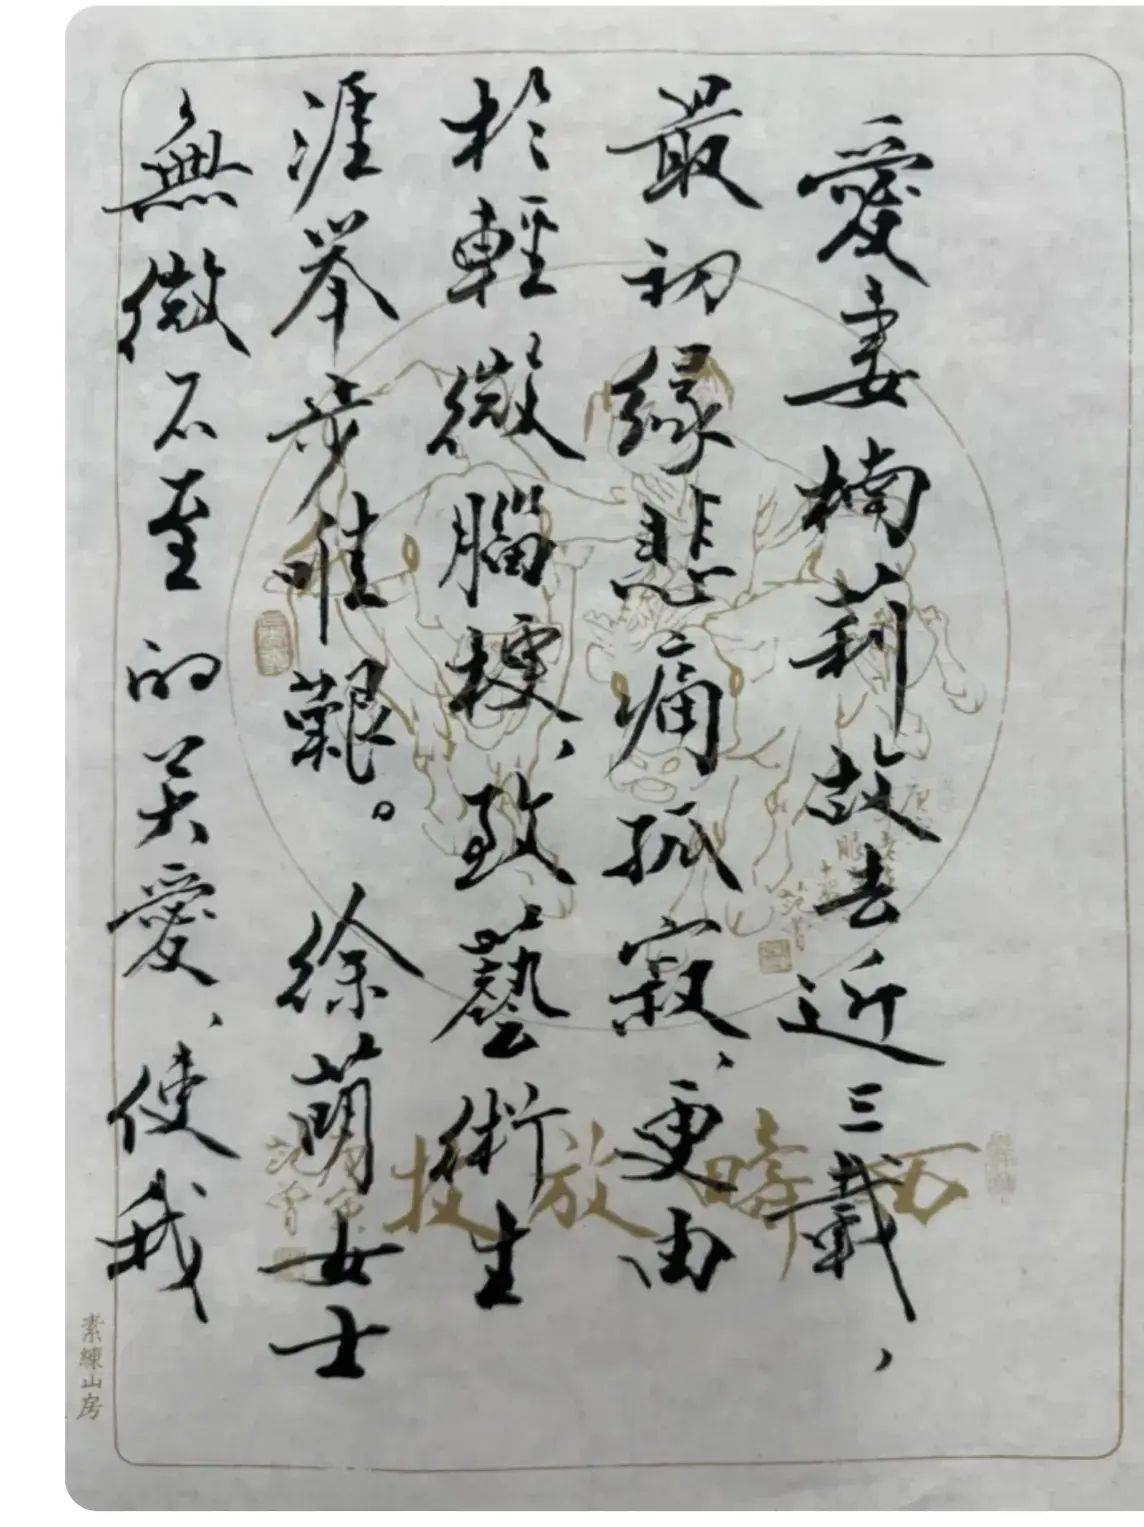 愛妻楠莉故去近三載，
最初緣悲痛孤寂、更由
於輕微腦梗、致藝術生
涯举步惟艱。徐萌女士
無微不至的关愛、使我
西疇放牧
范曾
范曾
素練山房